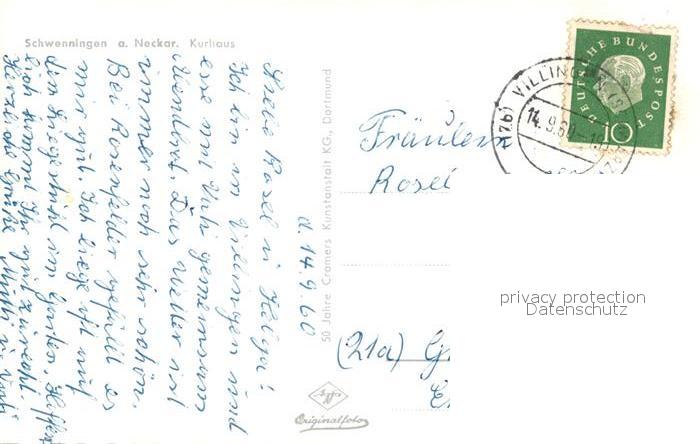 Schwenningen a. Neckar. Kurhaus
d. 14.9.60
Liebe Rosel u Helga!
Ich bin in Villingen und
eine mit Vati gemeinsam
Das Wetter ist
immer noch sehr schön.
Bei Rosenfelder gefällt es
mir gut. Ich liege oft auf
dem Liegestuhl im Garten. Hoffent
lich kommt Ihr gut zurecht.
Herzliche Grüße Mutti u Vati
50 Jahre Cramers Kunstanstalt KG., Dortmund
Agfa
Originalfoto
DEUTSCHE BUNDESPOST
10
(17b) VILLINGEN
14.9.60
Fräulein
Rosel
privacy protection
Datenschutz
(21a) G